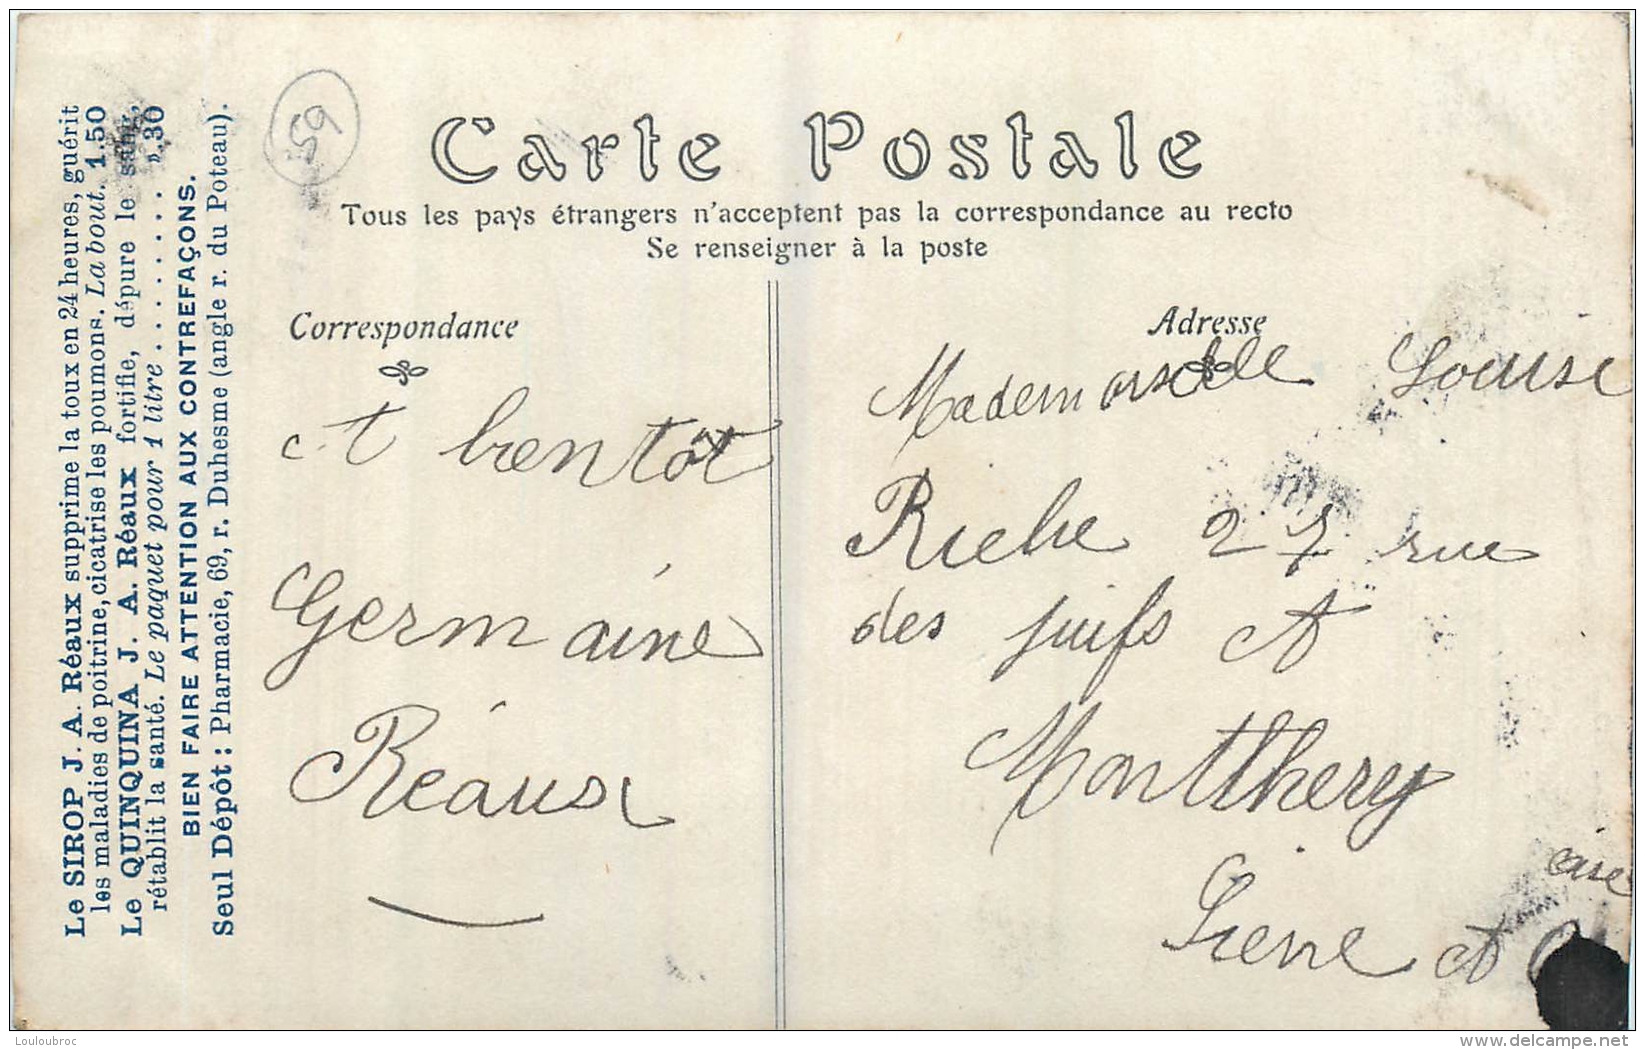 Le SIROP J. A. Réaux supprime la toux en 24 heures, guérit
les maladies de poitrine, cicatrise les poumons. La bout. 1.50
Le QUINQUINA J. A. Réaux fortifie, dépure le sang,
rétablit la santé. Le paquet pour 1 litre . . . . . . . . ».30
BIEN FAIRE ATTENTION AUX CONTREFAÇONS.
Seul Dépôt : Pharmacie, 69, r. Duhesme (angle r. du Poteau).
59
Carte Postale
Tous les pays étrangers n'acceptent pas la correspondance au recto
Se renseigner à la poste
Correspondance
A bientôt
Germaine
Réaux
Adresse
Mademoiselle Louise
Riche 27 rue
des juifs A
Montlhery
Seine et
oise
Louloubroc
delcampe.net